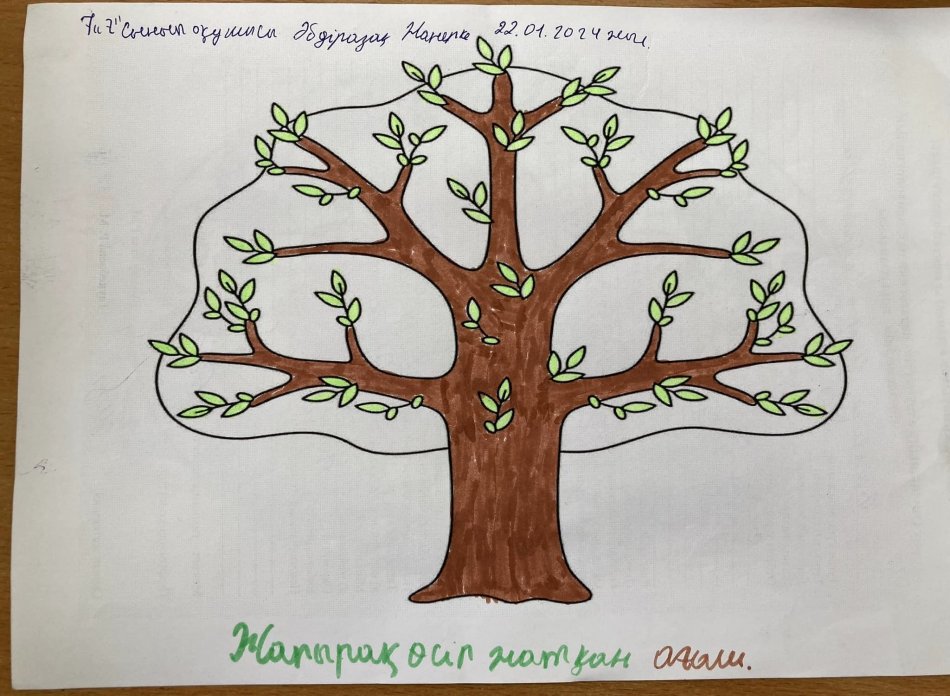 7 "Z" сынып оқушысы Әбдіразақ 22.01.2024 жыл.
Жапырақ өсіп жатқан ағаш.